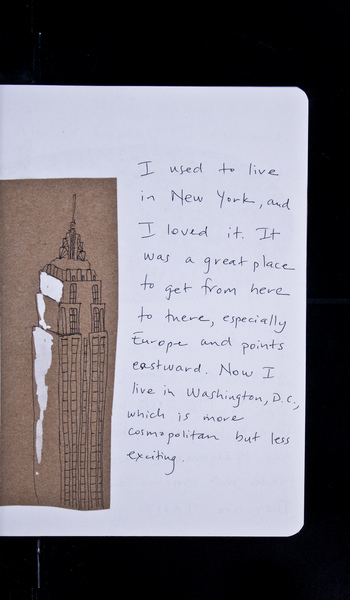 I used to live
in New York, and
I loved it. It
was a great place
to get from here
to there, especially
Europe and points
eastward. Now I
live in Washington, D.C.,
which is more
cosmopolitan but less
exciting.